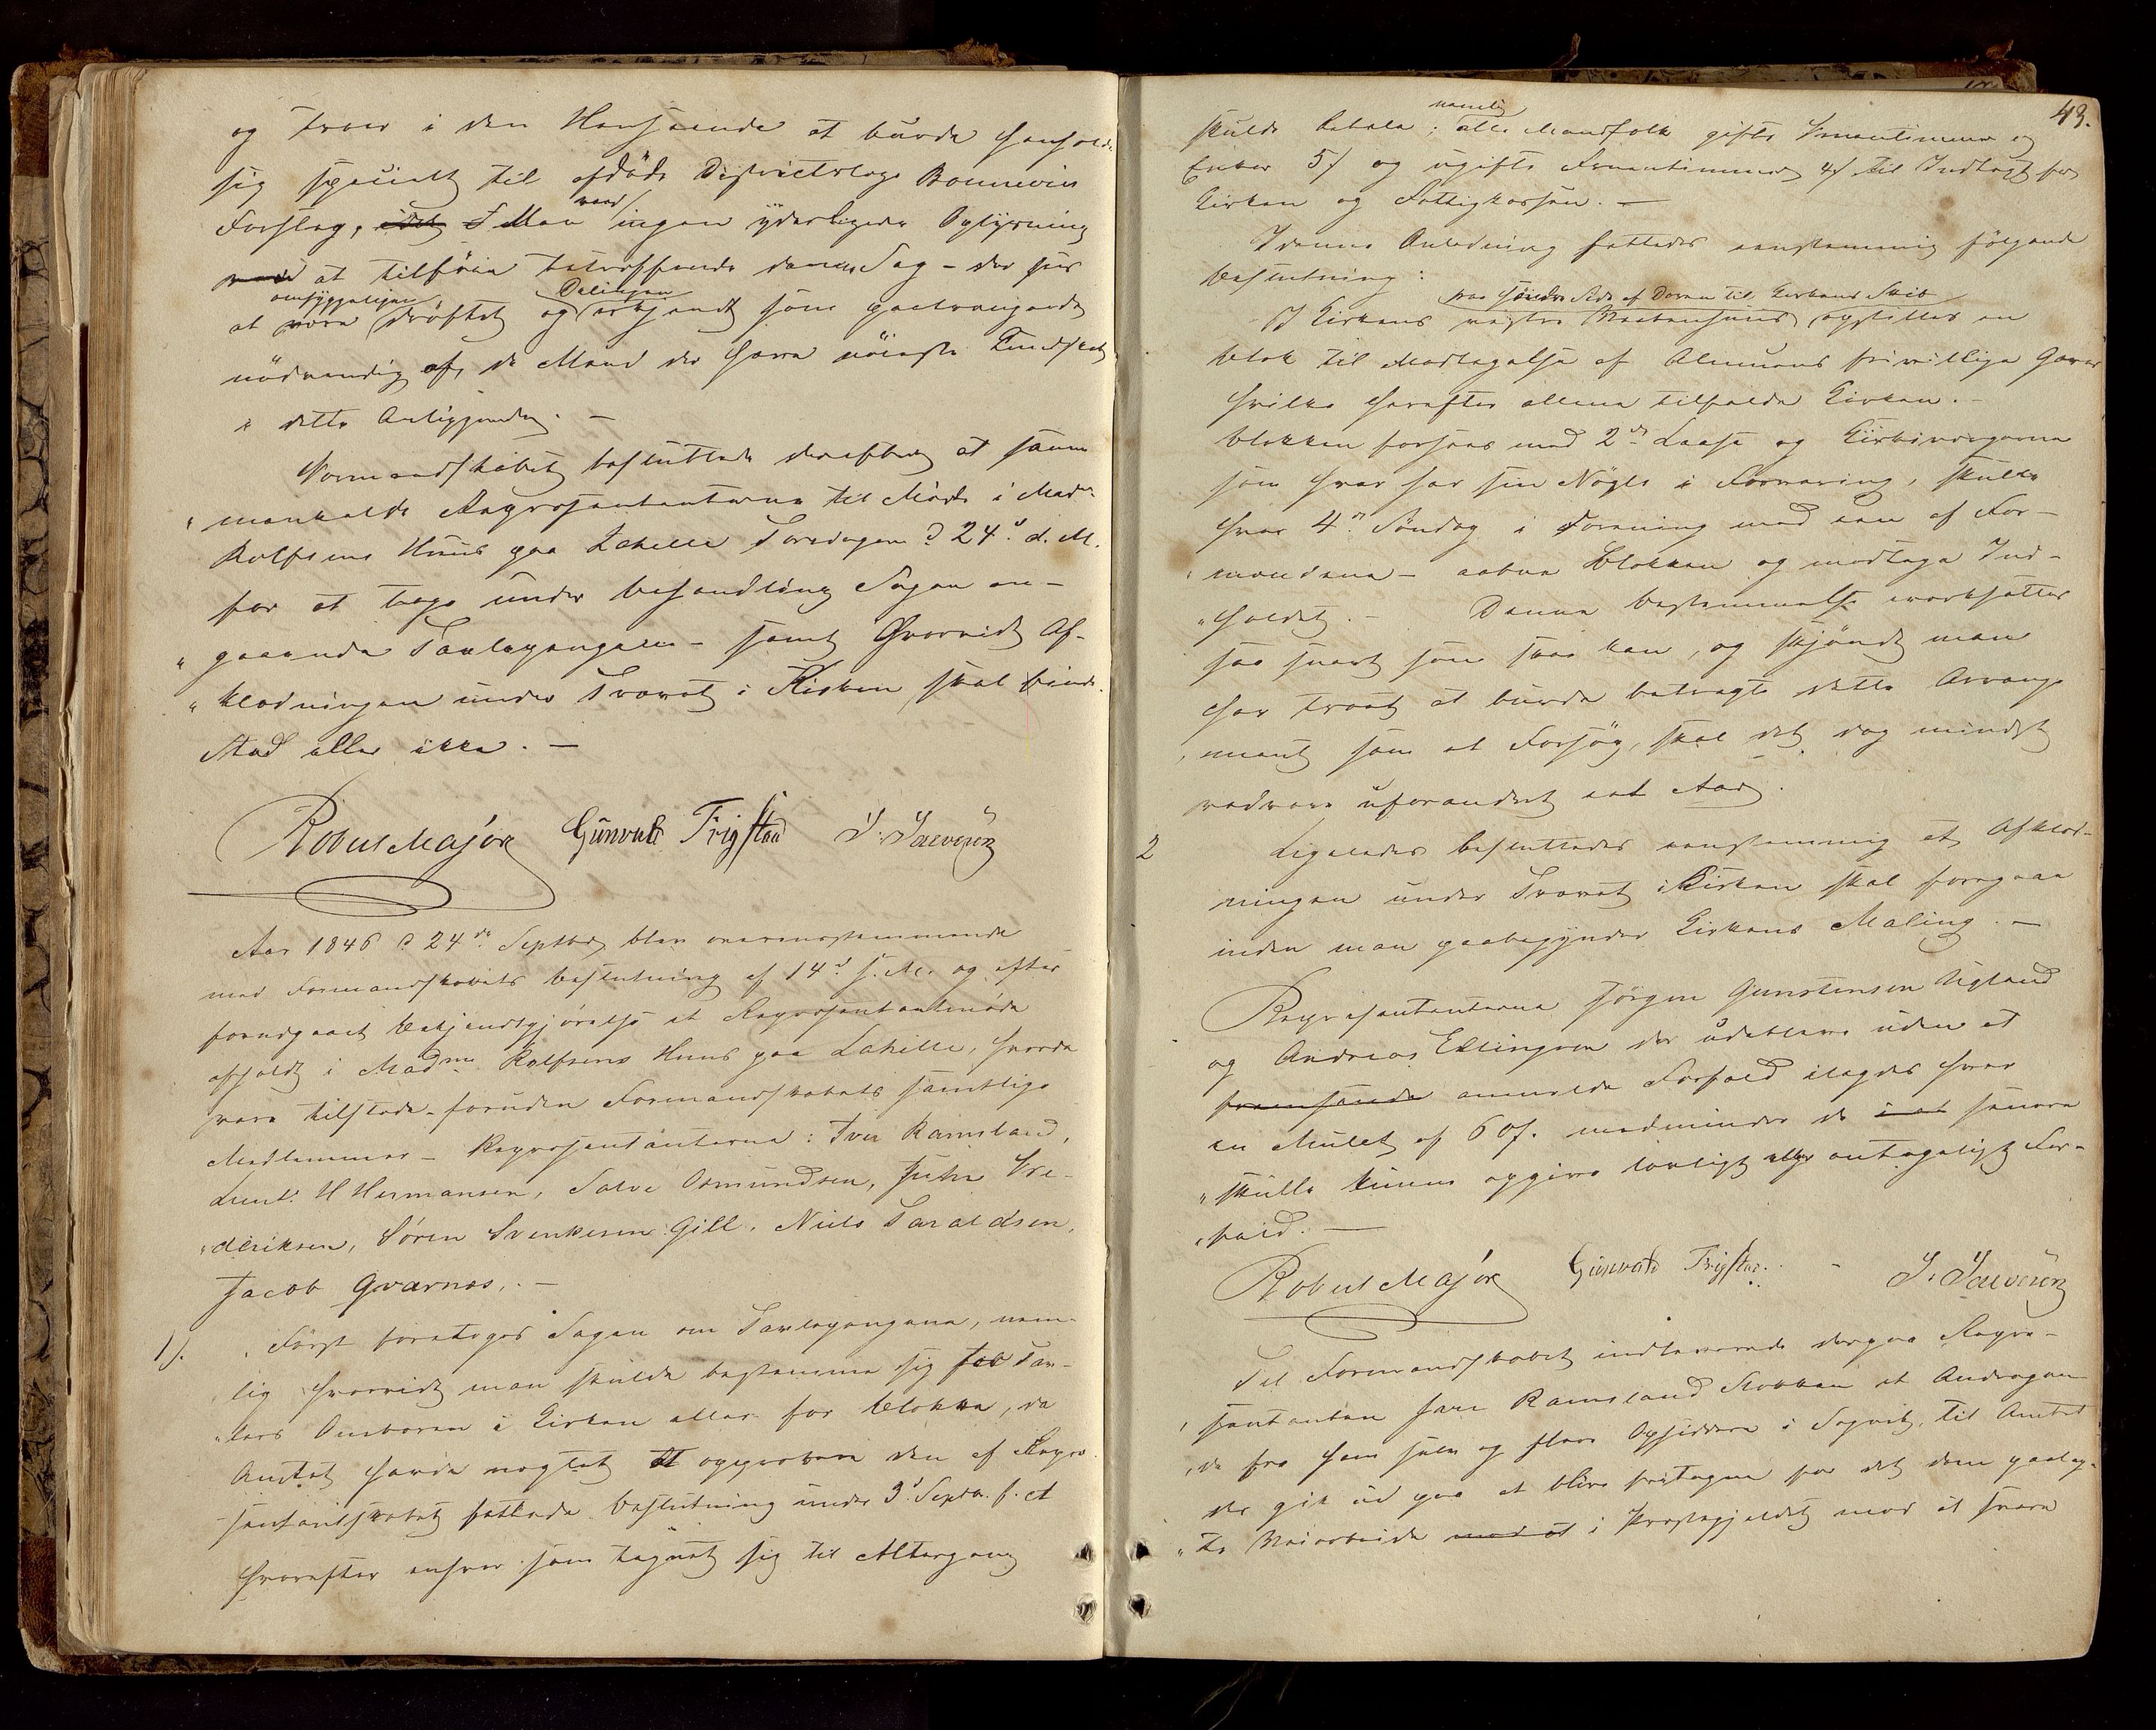 og troer i den Henseende at burde henholde
sig specielt til afdøde Districtslæge Bonnevies
Forslag, idet I Man veed ingen yderligere Oplysning
at tilføie betræffende denne Sag - der hos
omhyggeligen Delingen
at være drøftet og erkjendt som paatrængende
nödvendig af, de Mænd der have nöieste Kundskab
i dette Anliggende. —
Formandskabet besluttede derefter at sam-
"menkalde Repræsentanterne til Møde i Mad.
Rolfsens Huus paa Lahelle Torsdagen d. 24de d. M.
for at tage under Behandling Sagen an-
"gaaende Tavlepengene - samt hvorvidt Af-
"klædningen under Tværet i Kirken skal finde
Sted eller ikke. —
Robert Major Gunvald Trigstad S. Salvesen
Aar 1846 d 24de Septbr blev overensstemmende
med Formandskabets Beslutning af 14de s. M. og efter
forudgaaet Bekjendtgjørelse et Repræsentantmøde
afholdt i Madme Rolfsens Huus paa Lahelle, hvorda
vare tilstede - foruden Formandskabets samtlige
Medlemmer - Repræsentanterne: Iver Ramsland,
Lieut. H Hermansen, Salve Osmundsen, Juhn Fre-
"deriksen, Søren Svenkesen Gill, Niels Taraldsen,
Jacob Qvarnes. —
1). Først foretoges Sagen om Tavlepengene, nem-
lig hvorvidt man skulde bestemme sig for Tav-
"lers Ombæren i Kirken eller for Blokke, da
Amtet havde negtet at approbere den af Repræ-
sentantskabet fattede Beslutning under 3d Septbr. f. A
hvorefter enhver som tegnet sig til Altergang
43.
nemlig
skulde betale; alle Mandfolk gifte Fruentimmer og
Enker 5 s og ugifte Fruentimmer 4 s til Indtægt for
Kirken og Fattigkassen. —
I denne Anledning fattedes eenstemmig følgende
Beslutning:
paa søndre Side af Doren til Kirkens Skib
I Kirkens vestre Vaabenhuus opstilles en
Blok til Modtagelse af Almuens frivillige Gaver
hvilke herefter allene tilfalde Kirken. -
Blokken forsees med 2de Laase og Kirkeværgerne
som hver har sin Nøgle i Forvaring, skulle
hver 4de Søndag i Forening med een af For-
"mændene - aabne Blokken og modtage Ind-
"holdet. - Denne Bestemmelse iværksættes
saa snart som skee kan, og skjöndt man
har troet at burde betragte dette Arrange
"ment som et Forsøg, skal det dog mindst
vedvare uforandret eet Aar.
2 Ligeledes besluttedes eenstemmig at Afklæd-
ningen under Tværet i Kirken skal foregaae
inden man paabegynder Kirkens Maling. —
Repræsentanterne Jörgen Gunstensen Ugland
og Andreas Ellingsen der udebleve uden at
fremsende anmelde Forfald ilagdes hver
en Mulct af 60 s. medmindre de senere
"skulle kunne opgive lovligt eller antageligt For-
"fald. —
Robert Major Gunvald Trigstad - S. Salvesen
Til Formandskabet indleverede derpaa Repræ-
"sentanten Iver Ramsland Stokken et Andragen-
"de fra ham selv og flere Opsiddere i Sognet, til Amtet
der gik ud paa at blive fritagen for det dem paalag-
"te Veiarbeide med at i Præstegjeldet mod at svare